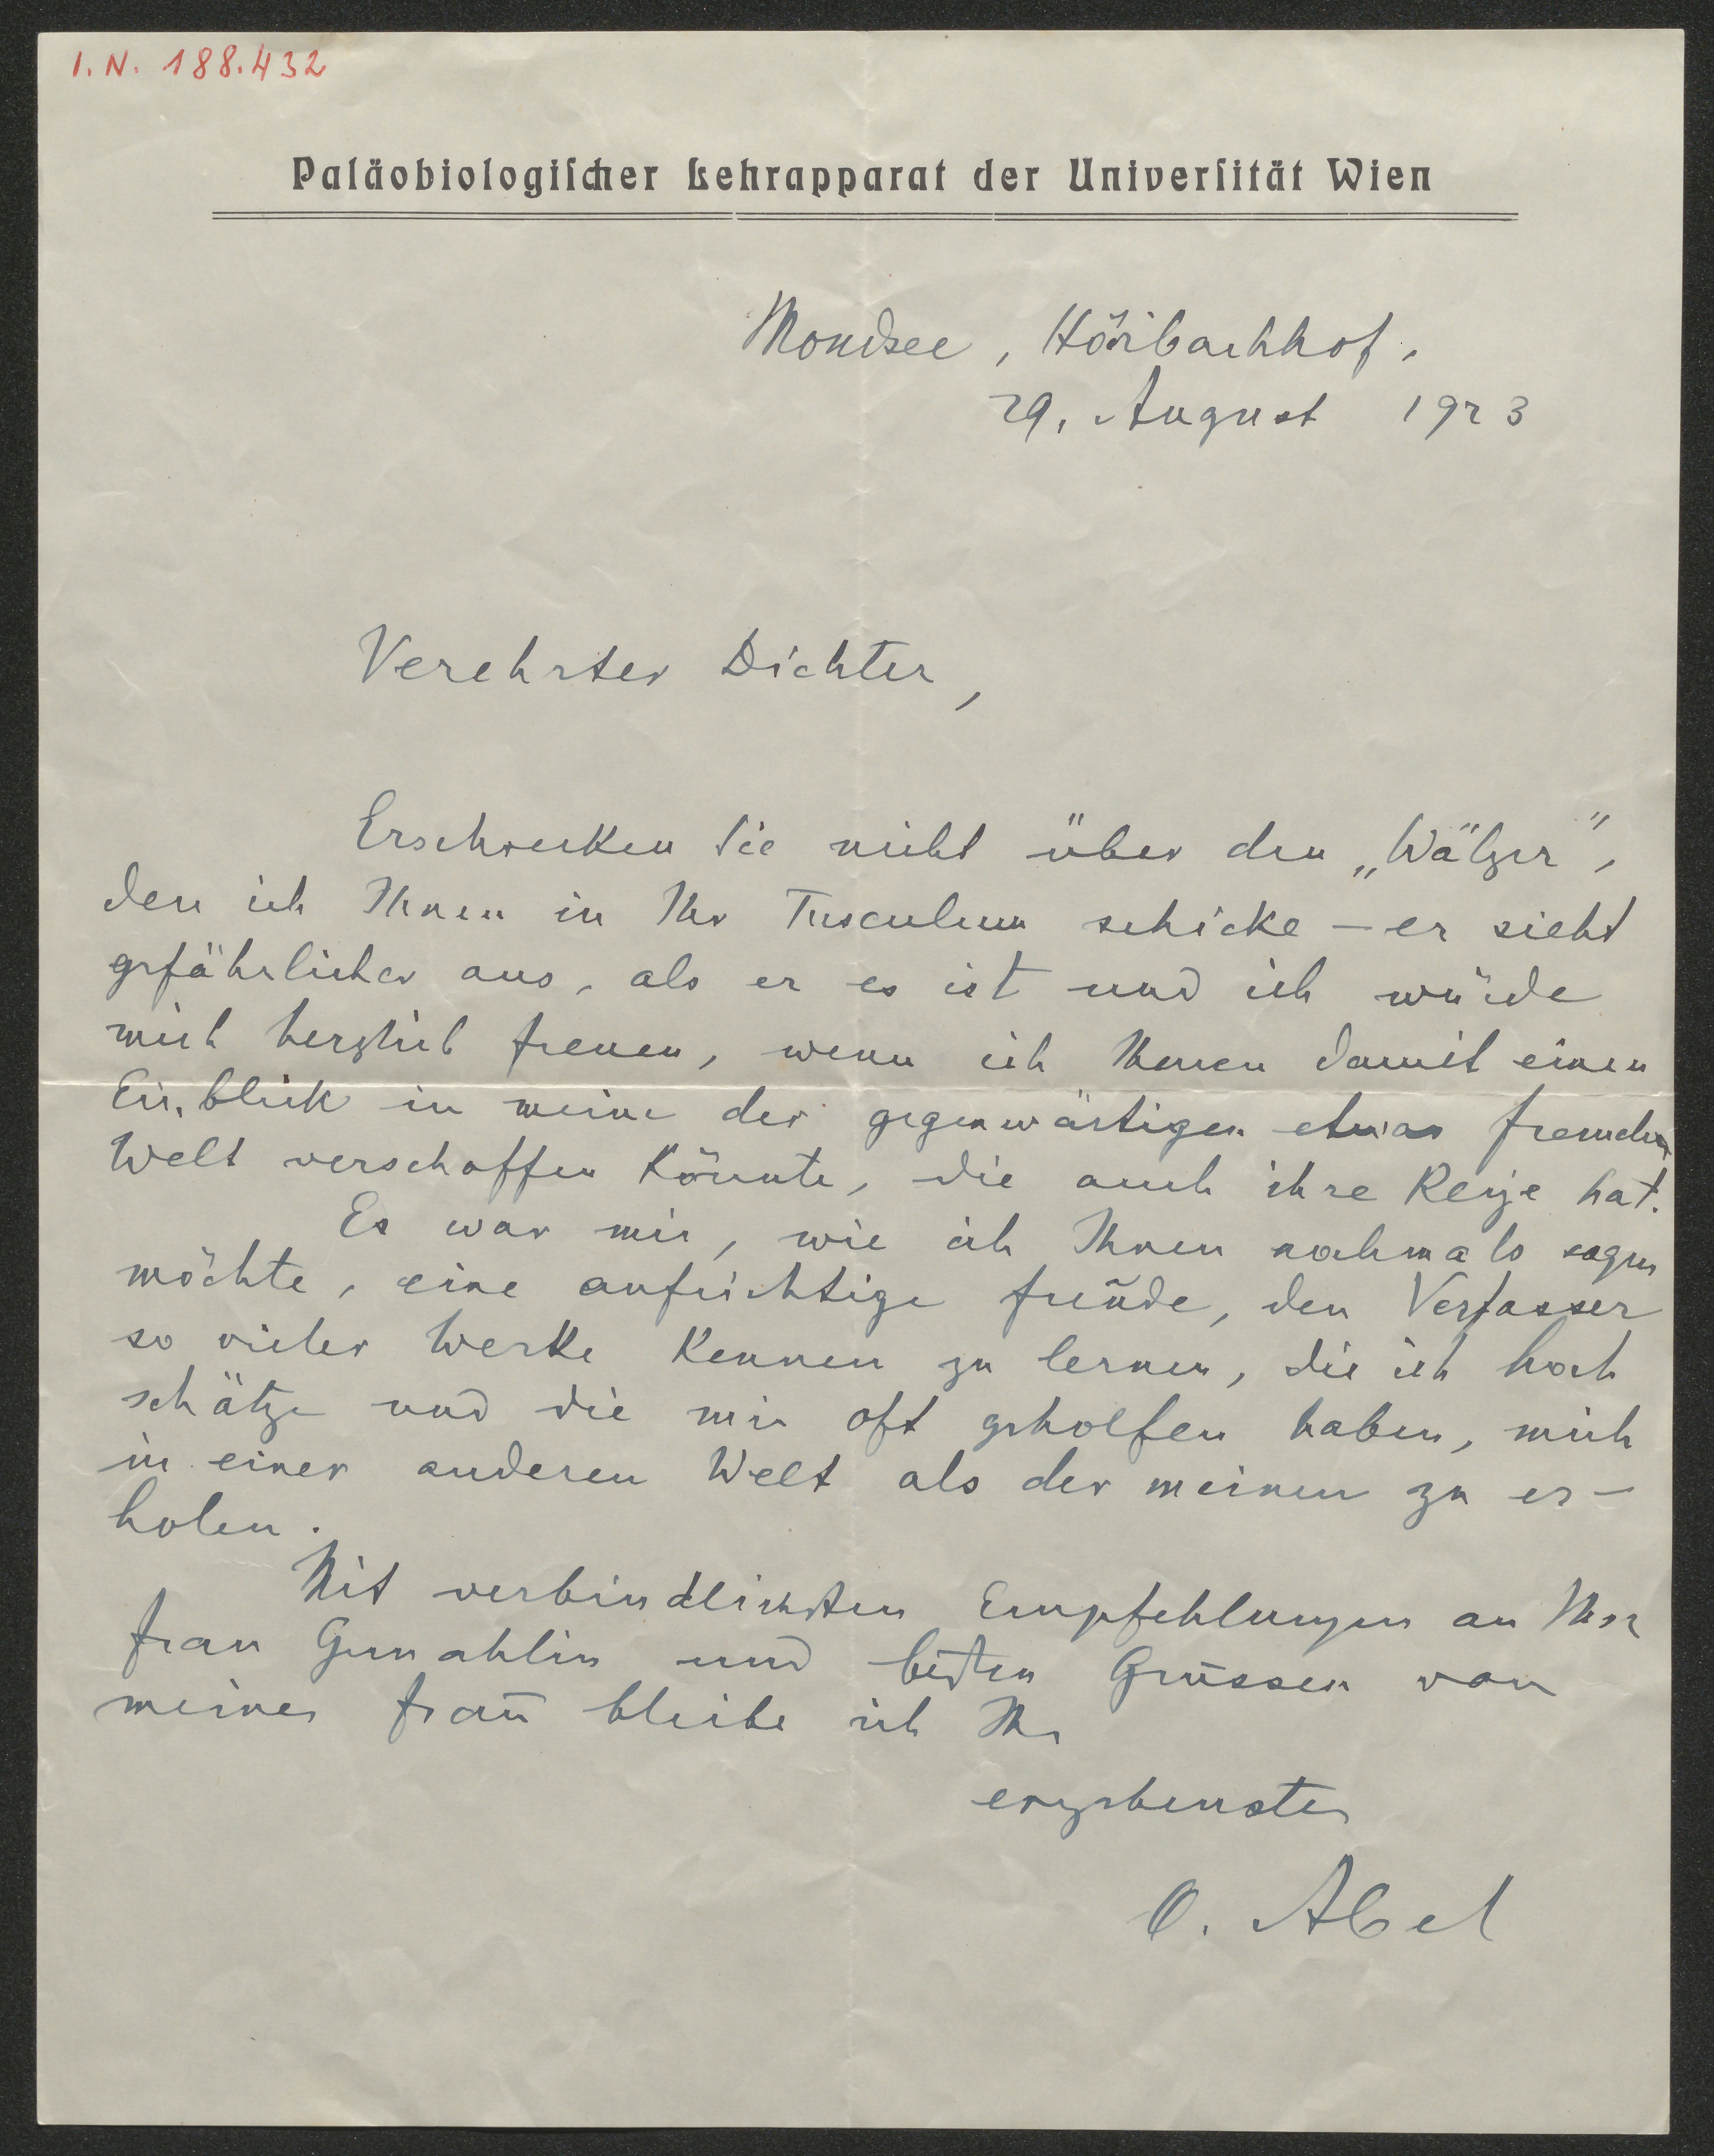 I. N. 188.432
Paläobiologischer Lehrapparat der Universität Wien
Mondsee, Höribachhof.
29. August 1923
Verehrter Dichter,
Erschrecken Sie nicht über den „Wälzer“,
den ich Ihnen in Ihr Tusculum schicke – er sieht
gefährlicher aus, als er es ist und ich würde
mich herzlich freuen, wenn ich Ihnen damit einen
Einblick in meine der gegenwärtigen etwas fremden
Welt verschaffen könnte, die auch ihre Reize hat.
Es war mir, wie ich Ihnen nochmals sagen
möchte, eine aufrichtige Freude, den Verfasser
so vieler Werke kennen zu lernen, die ich hoch
schätze und die mir oft geholfen haben, mich
in einer anderen Welt als der meinen zu er-
holen.
Mit verbindlichsten Empfehlungen an Ihre
Frau Gemahlin und besten Grüssen von
meiner Frau bleibe ich Ihr
ergebenster
O. Abel